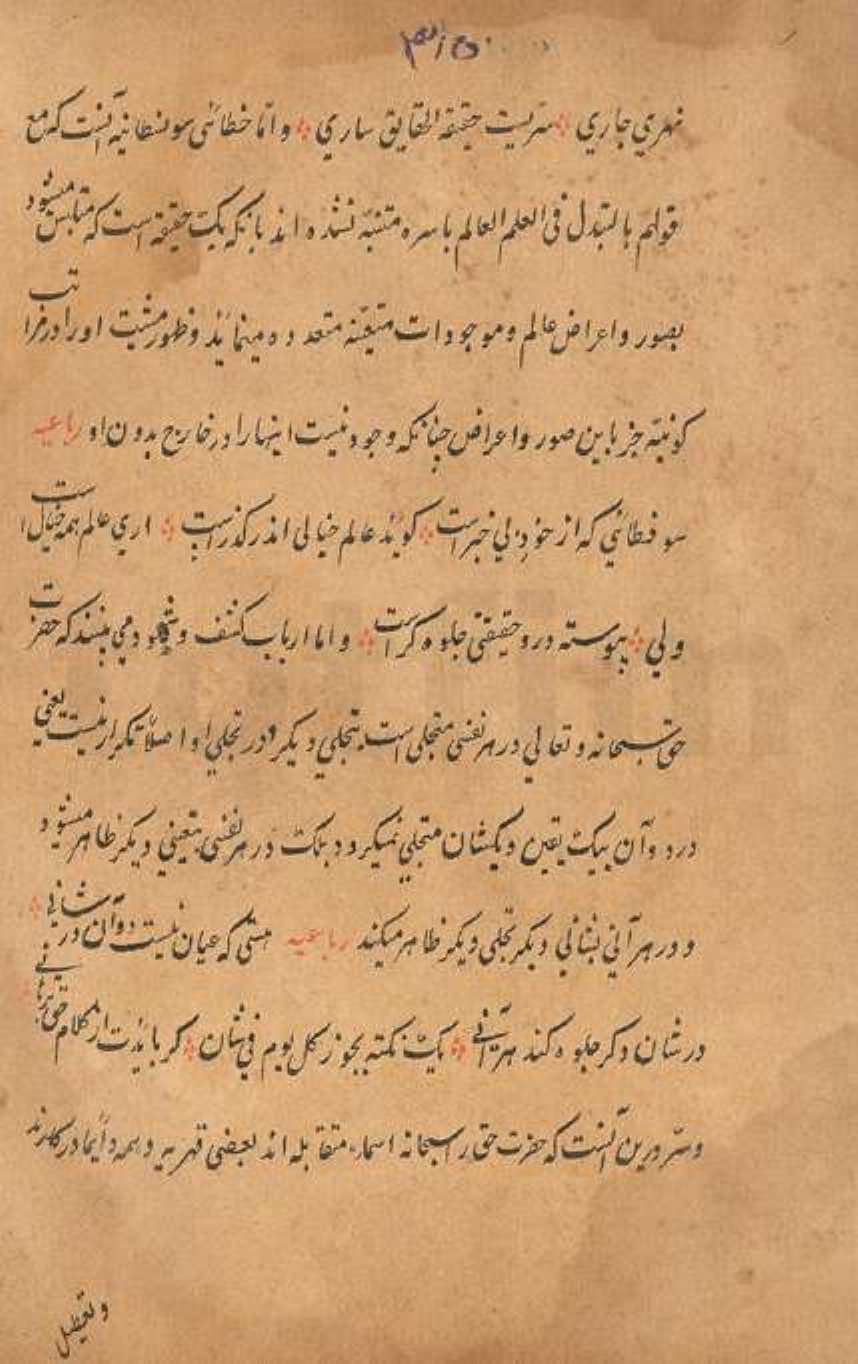 نهري جاري سريست حقيقة الحقايق ساري و اما خطائى سوفسطائيه آنست كه مع
قولهم بالتبدل فى العلم العالم باسره متنبه نشده اند بانكه يك حقيقة است كه متلبس ميشود
بصور و اعراض عالم و موجودات متعينه متعدده مينمايد و ظهور مشيت او را در مراتب
كونيه جز باين صور و اعراض چنانكه وجود نيست اينها را در خارج بدون او رباعيه
سوفسطائي كه از خود بي خبر است كويد عالم خيالى اندر كذر است اري عالم همه خيال است
ولي پيوسته درو حقيقتى جلوه كر است و اما ارباب كشف و شهود مي بينند كه حضرت
حق سبحانه و تعالي در هر نفسى متجلى است بتجلي ديكر و در تجلي او اصلا تكرار نيست يعني
در دو آن بيك تعين و يكشان متجلي نميكردد بلك در هر نفسى بتعيني ديكر ظاهر ميشود
و در هر آني بشاني ديكر تجلى ديكر ظاهر ميكند رباعيه هستى كه عيان نيست دو آن در شاني
در شان دكر جلوه كند هر آنے يك نكته بجو ز كل يوم فى شان كر بايدت از كلام حق برهانے
و سر درين آنست كه حضرت حق را سبحانه اسماء متقابله اند بعضى قهريه و همه دايما در كارند
و تعطيل